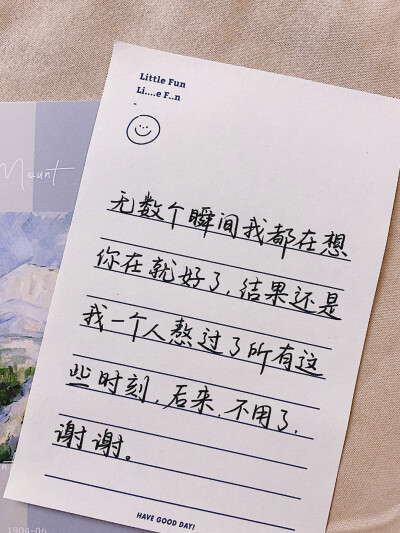 Little Fun
Li....e F..n
Mount
无数个瞬间我都在想
你在就好了,结果还是
我一个人熬过了所有这
些时刻,后来,不用了,
谢谢。
HAVE GOOD DAY!
1904-06